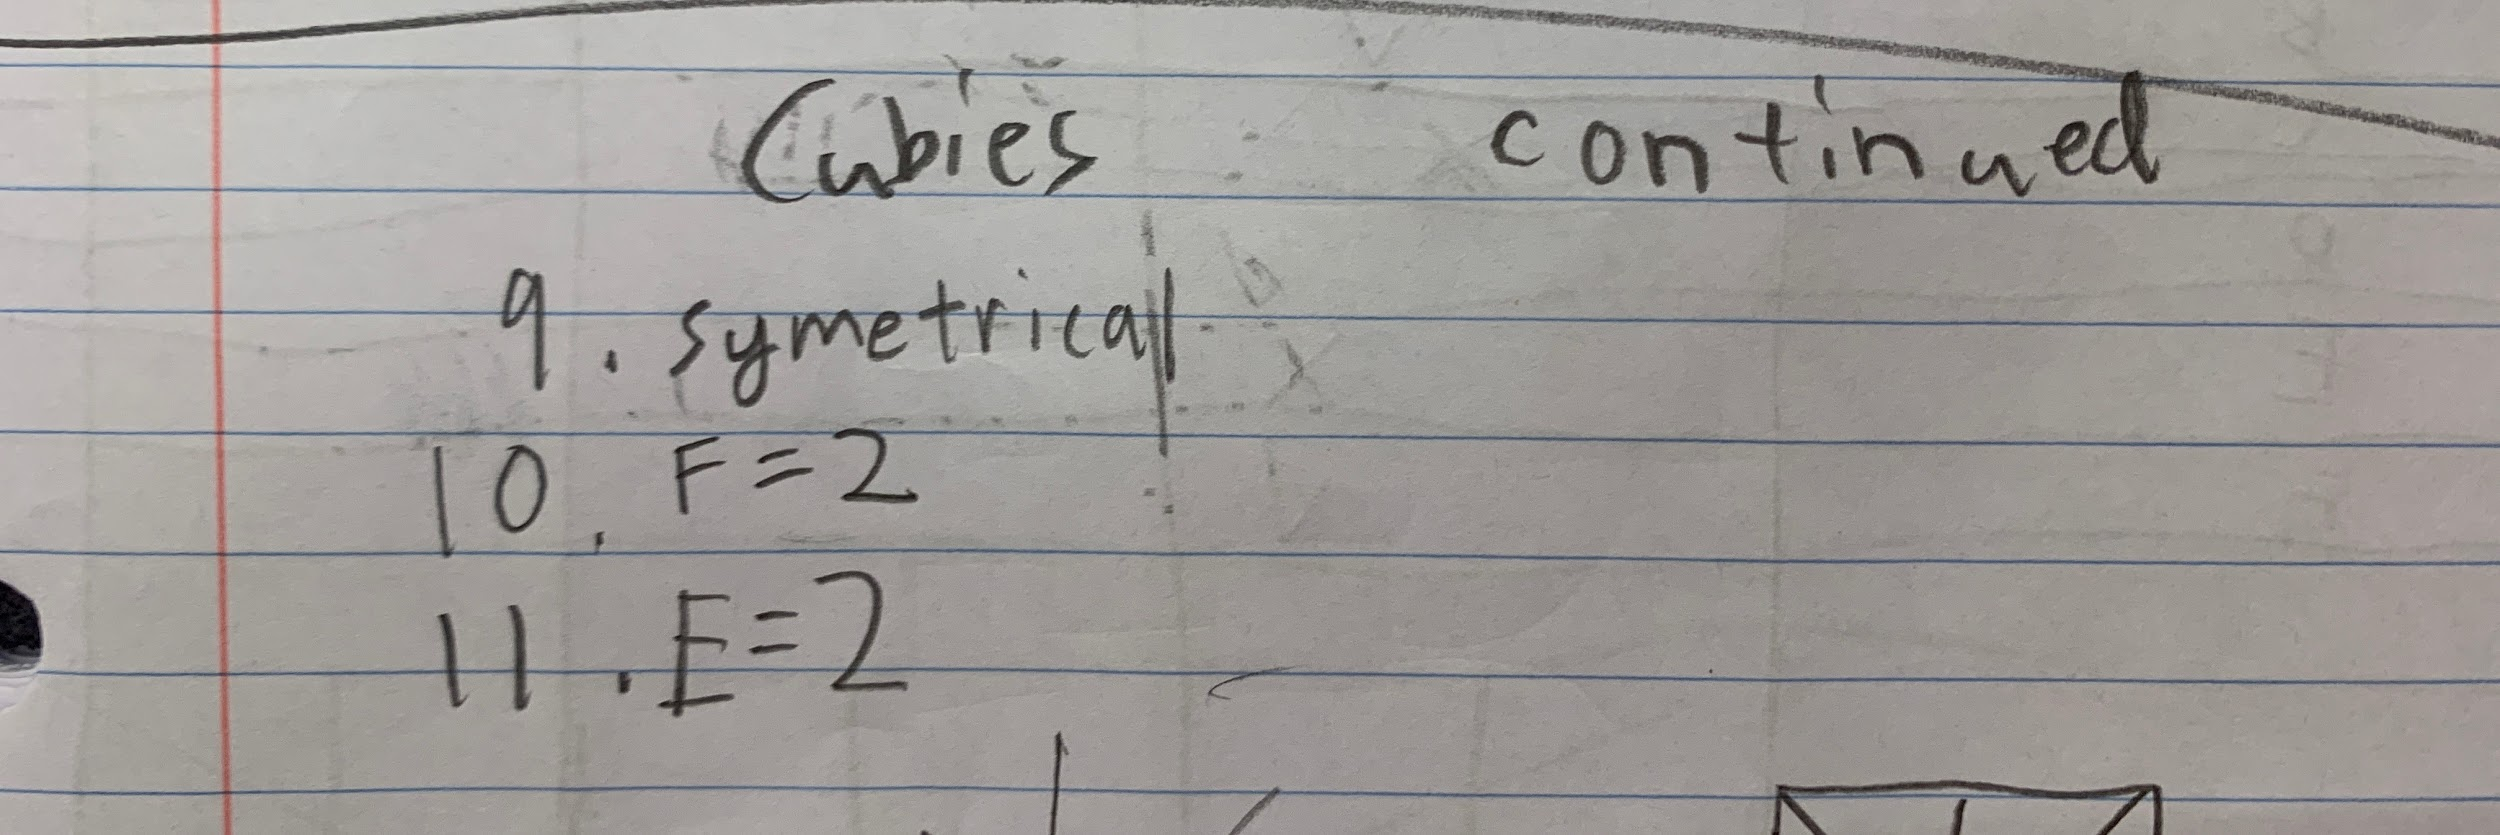 Cubies continued
9. symetrical
10. F=2
11. E=2